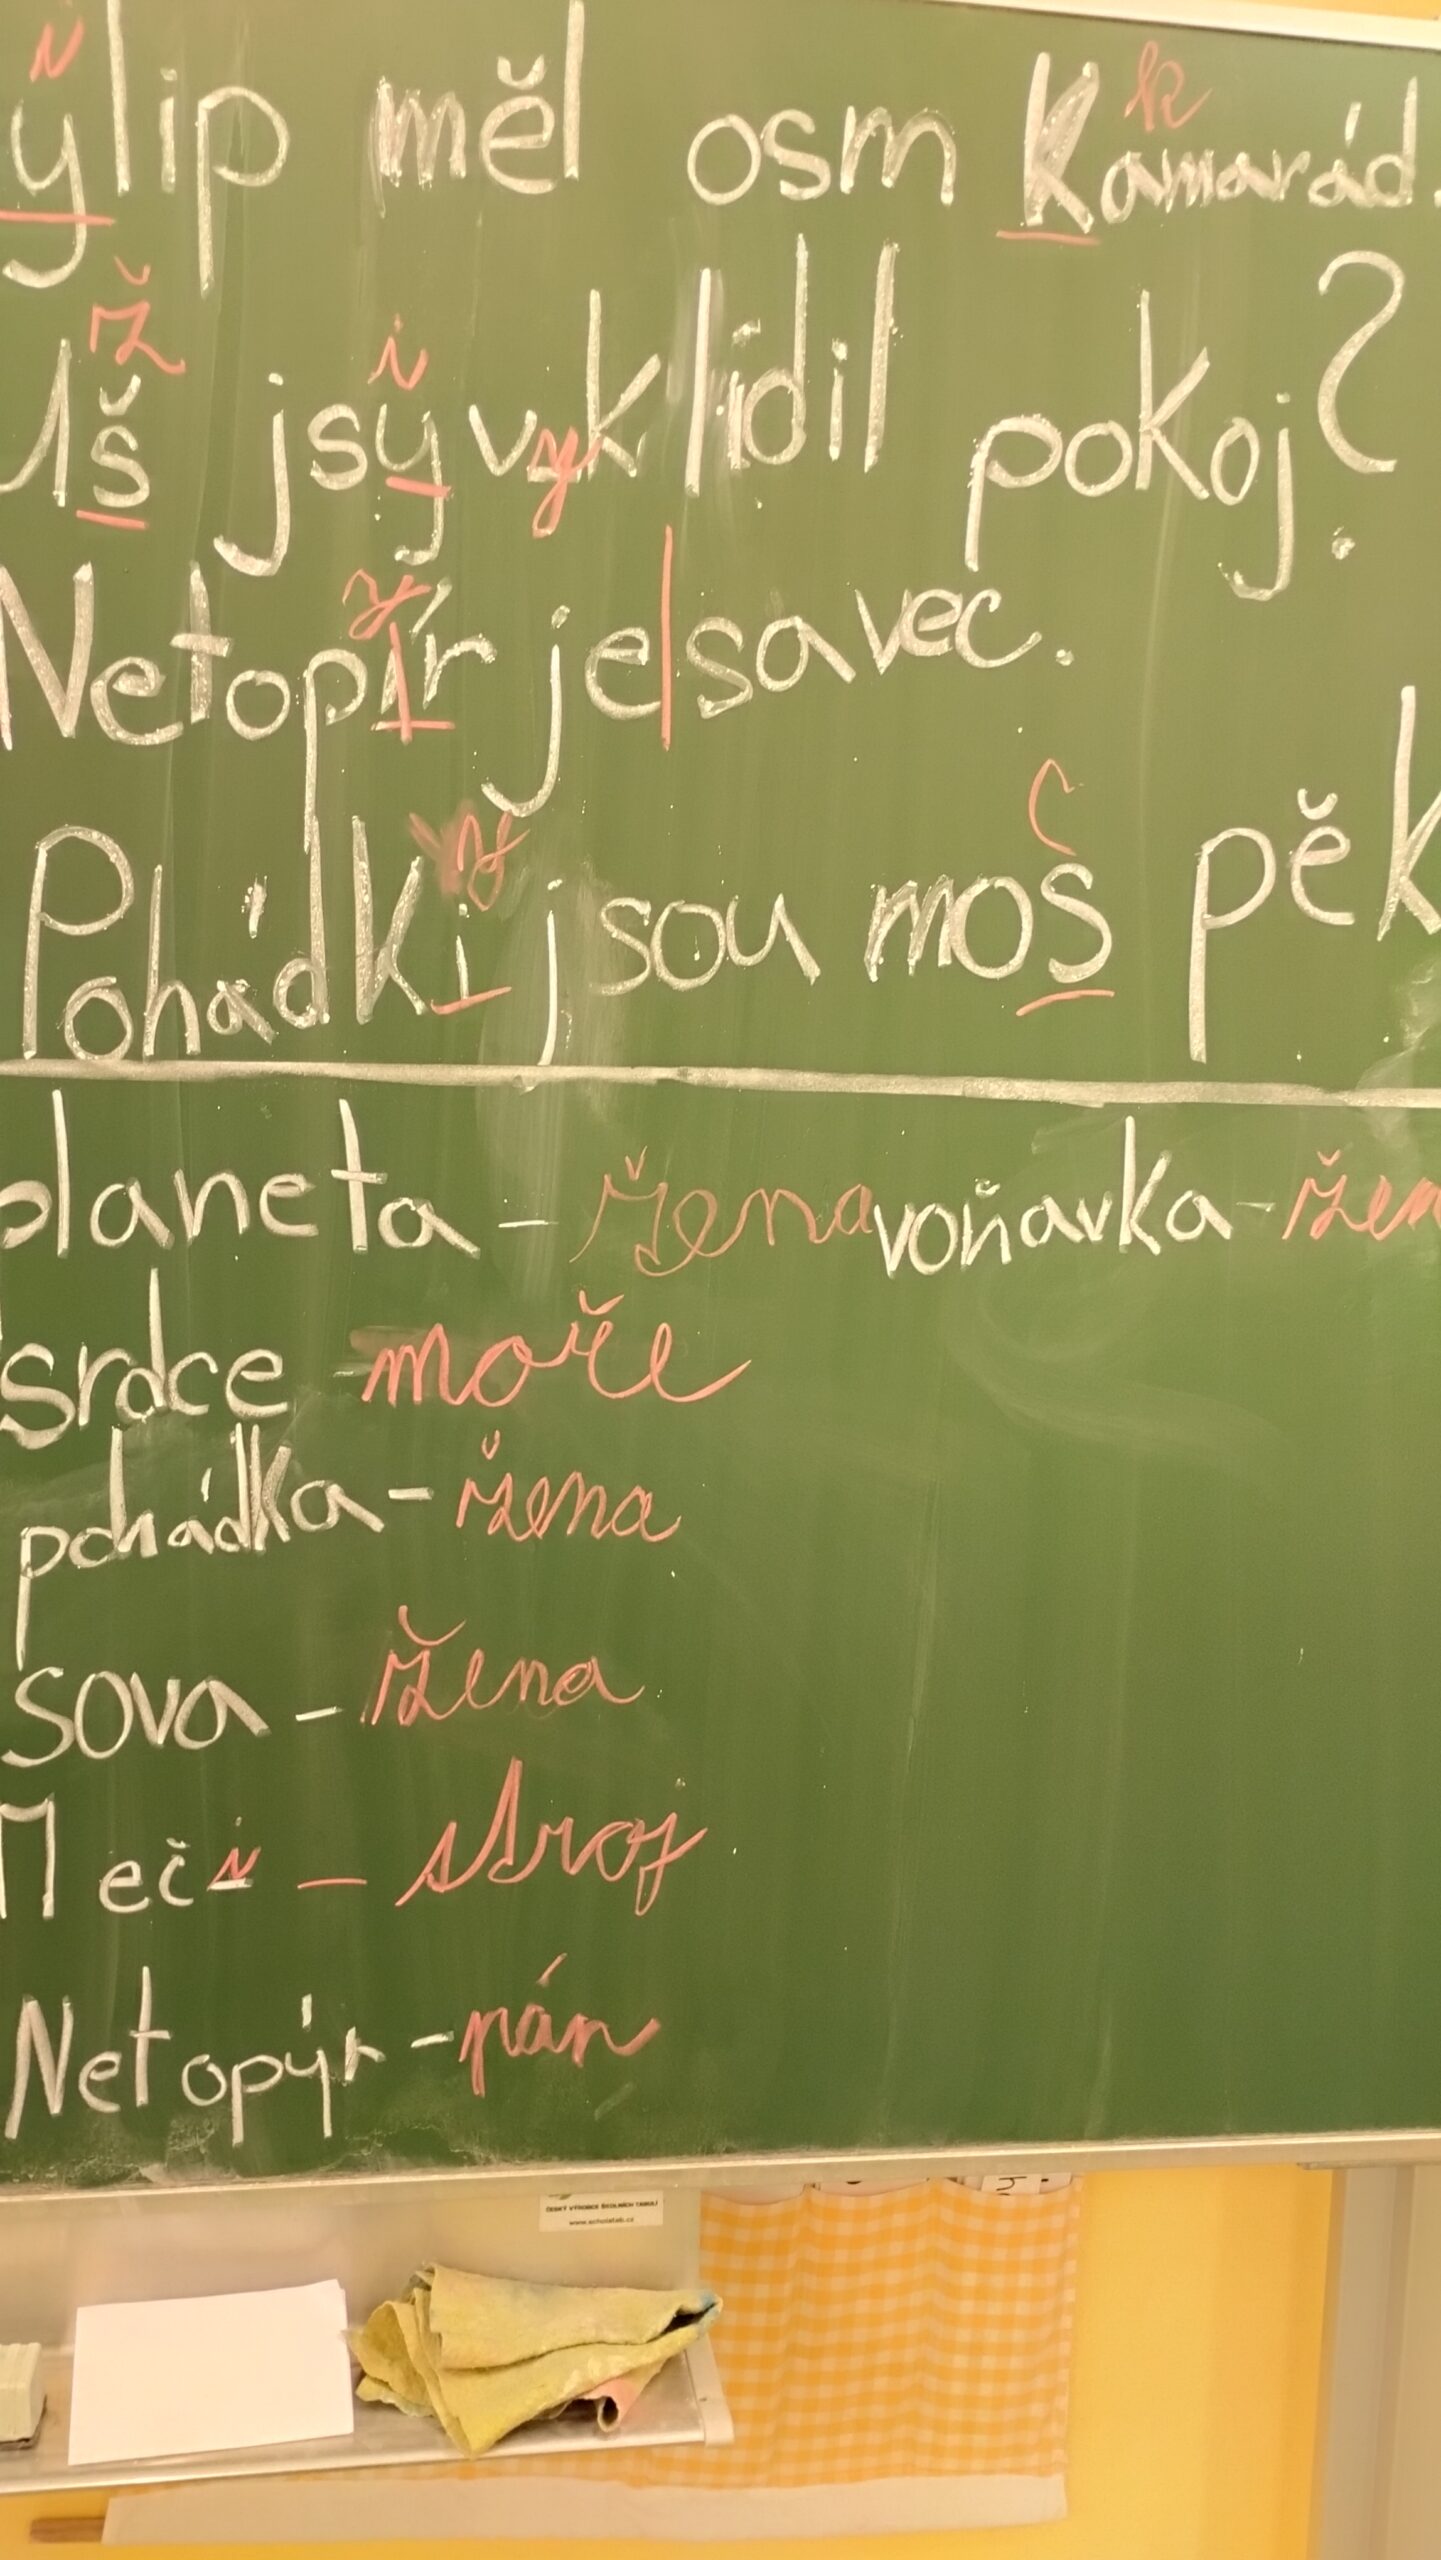 i k
ylip měl osm Kamarád.
ž i
Uš jsy vyklidil pokoj?
y
Netopír je|savec.
y c
Pohádki jsou mos pěk
planeta - žena voňavka - žen
srdce - moře
pohádka - žena
sova - žena
Meči - stroj
Netopýr - pán
ČESKÝ VÝROBCE ŠKOLNÍCH TABULÍ
www.scholatab.cz